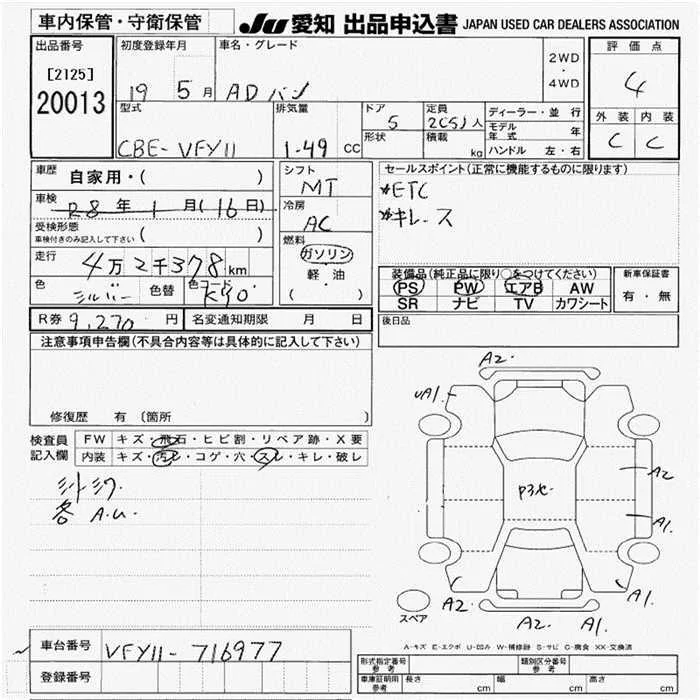 車内保管・守衛保管
JU 愛知 出品申込書 JAPAN USED CAR DEALERS ASSOCIATION
出品番号
[2125]
20013
初度登録年月
19 5月
車名・グレード
ADバン
2WD
・
4WD
評価点
4
外装 内装
C C
型式
CBE-VFY11
排気量
1.49 cc
ドア
5
形状
定員
2(5)人
積載
kg
ディーラー・並行
モデル年式 年
ハンドル 左・右
車歴 自家用・( )
車検 R8年1月(16日)
受検形態
車検付きのみ記入して下さい ( )
走行 4万2千378km
色 シルバー 色替 色コード KY0
シフト
MT
冷房
AC
燃料
ガソリン
軽油
( )
セールスポイント(正常に機能するものに限ります)
*ETC
*キレース
装備品(純正品に限り○をつけてください)
PS PW エアB AW
SR ナビ TV カワシート
新車保証書
有・無
R券 9,270円 名変通知期限 月 日
後日品
注意事項申告欄(不具合内容等は具体的に記入して下さい)
修復歴 有 (箇所 )
検査員
記入欄
FW キズ・飛石・ヒビ割・リペア跡・X要
内装 キズ・汚レ・コゲ・穴・スレ・キレ・破レ
各 A.U.
A2.
UA1.
A2
A1.
A2.
A2.
A1.
A1.
スペア
A-キズ E-エクボ U-凹み W-補修跡 S-サビ C-腐食 XX-交換済
車台番号 VFY11-716977
登録番号
形式指定番号
参考
類別区分番号
参考
車庫証明用
参考
長さ cm 幅 cm 高さ cm